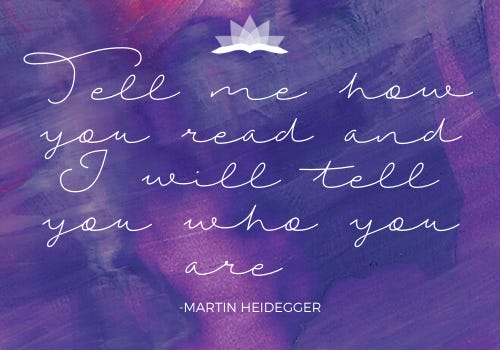 Tell me how
you read and
I will tell
you who you
are
-MARTIN HEIDEGGER